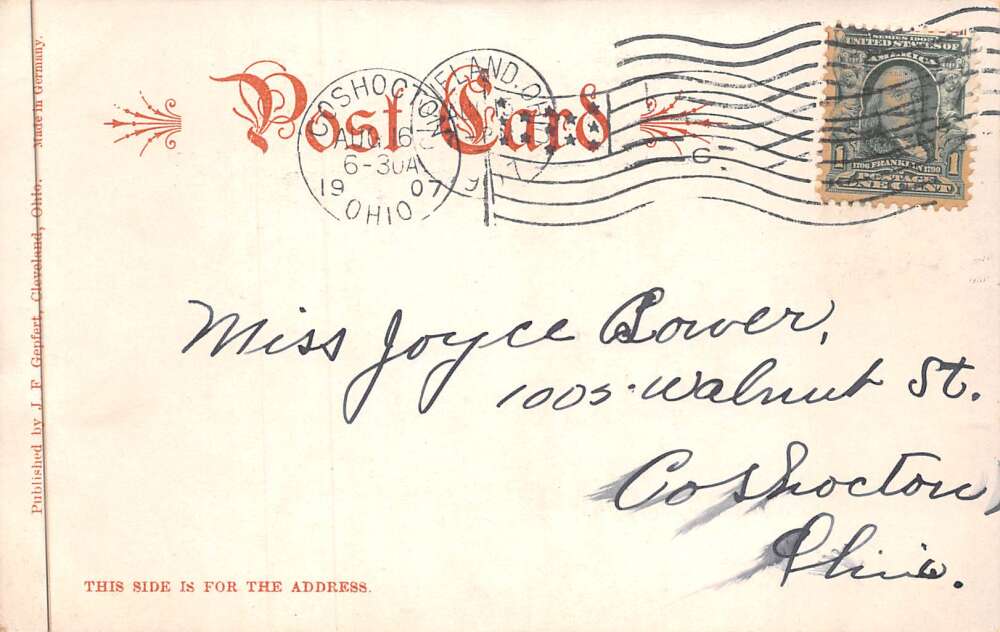 Post Card
COSHOCTON
AUG 6
6-30A
1907
OHIO
SERIES 1902
UNITED STATES OF
AMERICA
1706 FRANKLIN 1790
1 1
POSTAGE
ONE CENT
Miss Joyce Bower,
1005 Walnut St.
Coshocton,
Ohio.
THIS SIDE IS FOR THE ADDRESS.
Published by J. F. Gepfert, Cleveland, Ohio. Made in Germany.